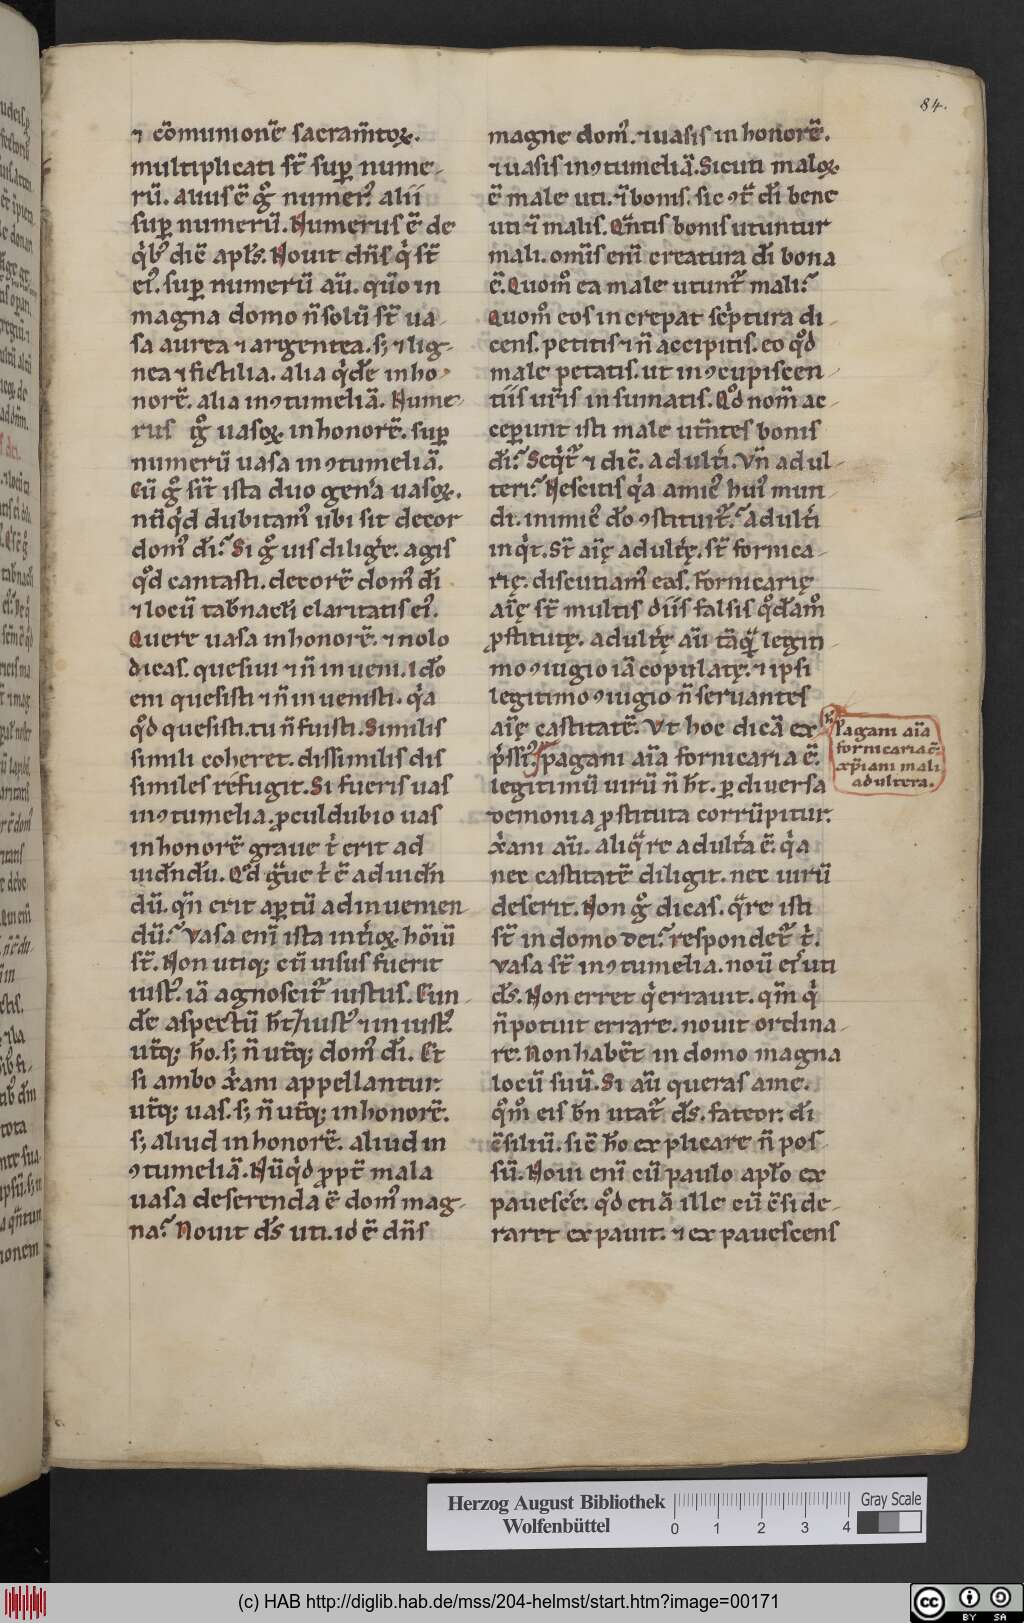 84.
⁊ cōmunionē sacram̄toꝝ.
multiplicati st̄ suꝑ nume-
rū. aliuſ ē gͦ numerꝰ. alii
ſuꝑ numerū. Numeruſ ē de
qͥbꝰ diē apl̄s. Nouit dn̄ſ qͥ ſt̄
eiꝰ. ſuꝑ numerū aū. qūo in
magna domo n̄ ſolū ſt̄ ua-
ſa aurea ⁊ argentea. ſꝫ ⁊ lig-
nea ⁊ fictilia. alia qͥdē in ho-
norē. alia in ꝯtumeliā. Nume-
ruſ gͦ uaſoꝝ in honorē. ſuꝑ
numerū uaſa in ꝯtumeliā.
Cū gͦ ſīt iſta duo gen̄a uaſoꝝ.
ntīqͥd dubitamꝰ ubi ſit decor
domꝰ dī? Si gͦ uiſ diligͤe. agiſ
qͦd cantaſti. decorē domꝰ dī
⁊ locū tab̄nacl̄i claritatiſ eiꝰ.
Quere uaſa in honorē. ⁊ nolo
dicaſ. queſiui ⁊ n̄ inueni. Ideo
eni queſiſti ⁊ n̄ inueniſti. qͥa
qͦd queſiſti. tu n̄ fuiſti. Similiſ
ſimili coheret. diſſimiliſ diſ
ſimileſ refugit. Si fueriſ uaſ
in ꝯtumelia. ꝓculdubio uaſ
in honorē graue tͥ erit ad
uidn̄dū. Qͦd gͣue tͥ ē ad uidn̄
dū. qn̄ erit aꝑtū ad inuenien
dū? Vaſa enī iſta int̄ioꝝ hōiū
ſt̄. Non utiqꝫ cū uiſuſ fuerit
iuſtꝰ. iā agnoſcit᷑ iuſtuſ. Eun-
dē aſpectū hn̄t iuſtꝰ ⁊ iniuſtꝰ.
ut̄qꝫ ho. ſꝫ n̄ ut̄qꝫ domꝰ dī. Et
ſi ambo xͬani appellantur.
ut̄qꝫ uaſ. ſꝫ n̄ ut̄qꝫ in honorē.
ſꝫ aliud in honorē. aliud in
ꝯtumeliā. Nūqͥd ꝓpt̄ mala
uaſa deſerenda ē domꝰ mag-
na? Nouit dſ̄ uti. id ē dn̄ſ
magne domꝰ. ⁊ uaſiſ in honorē.
⁊ uaſiſ in ꝯtumeliā. Sicuti maloꝝ
ē male uti. ⁊ boniſ. ſic ꝯt̄ dī bene
uti ⁊ maliſ. Qn̄tiſ boniſ utuntur
mali. omīſ enī creatura dī bona
ē. Quomͦ ea male utunt᷑ mali?
Quomͦ eoſ increpat ſcͥptura di
cenſ. petitiſ ⁊ n̄ accipitiſ. eo qͦd
male petatiſ. ut in ꝯcupiſcen-
tiiſ ur̄iſ inſumatiſ. Qͦd nom̄ ac-
ceꝑunt iſti male ut̄nteſ boniſ
dī? Seqͥt᷑ ⁊ diē. adult̄i. Vn̄ adul-
teri? Neſcitiſ qͥa amicꝰ huiꝰ mun-
di. inimicꝰ dō ꝯſtituit᷑? adult̄i
inqͥt. St̄ aīę adult̄ę. ſt̄ fornica-
rię. diſcutiamꝰ eaſ. Fornicarię
aīę ſt̄ multiſ diiſ falſiſ qͦdāmͦ
ꝓſtitutę. adult̄ę aū tāqͣ legiti-
mo ꝯiugio iā copulatę. ⁊ ipſi
legitimo ꝯiugio n̄ ſeruanteſ
aīę caſtitatē. Vt hoc dicā ex
pͥſſiꝰ. pagani aīa fornicaria ē.
legitimū uirū n̄ ht̄. ꝑ diuerſa
demonia ꝓſtituta corrūpitur.
xͬani aū. aliqͣre adult̄a ē. qͥa
nec caſtitatē diligit. nec uirū
deſerit. Non gͦ dicaſ. qͣre iſti
ſt̄ in domo dei? reſpondet᷑ tͥ.
Vaſa ſt̄ in ꝯtumelia. nouͭ eiſ uti
dſ̄. Non erret qͥ errauit. qm̄ qͥ
n̄ potuit errare. nouit ordina-
re. Non habēt in domo magna
locū ſuū. Si aū queraſ a me.
qͦmͦ eiſ bn̄ utat᷑ dſ̄. fateor. dī
ꝯſiliū. ſic hō explicare n̄ poſ-
ſū. Noui enī cū paulo apl̄o ex
paueſcͤe. qͦd etiā ille cū ꝯſide-
raret expauit. ⁊ expaueſcenſ
Pagani aīa
fornicaria ē.
xp̄iani mali
adultera.
Herzog August Bibliothek
Wolfenbüttel
0 1 2 3 4
Gray Scale
(c) HAB http://diglib.hab.de/mss/204-helmst/start.htm?image=00171
cc BY SA